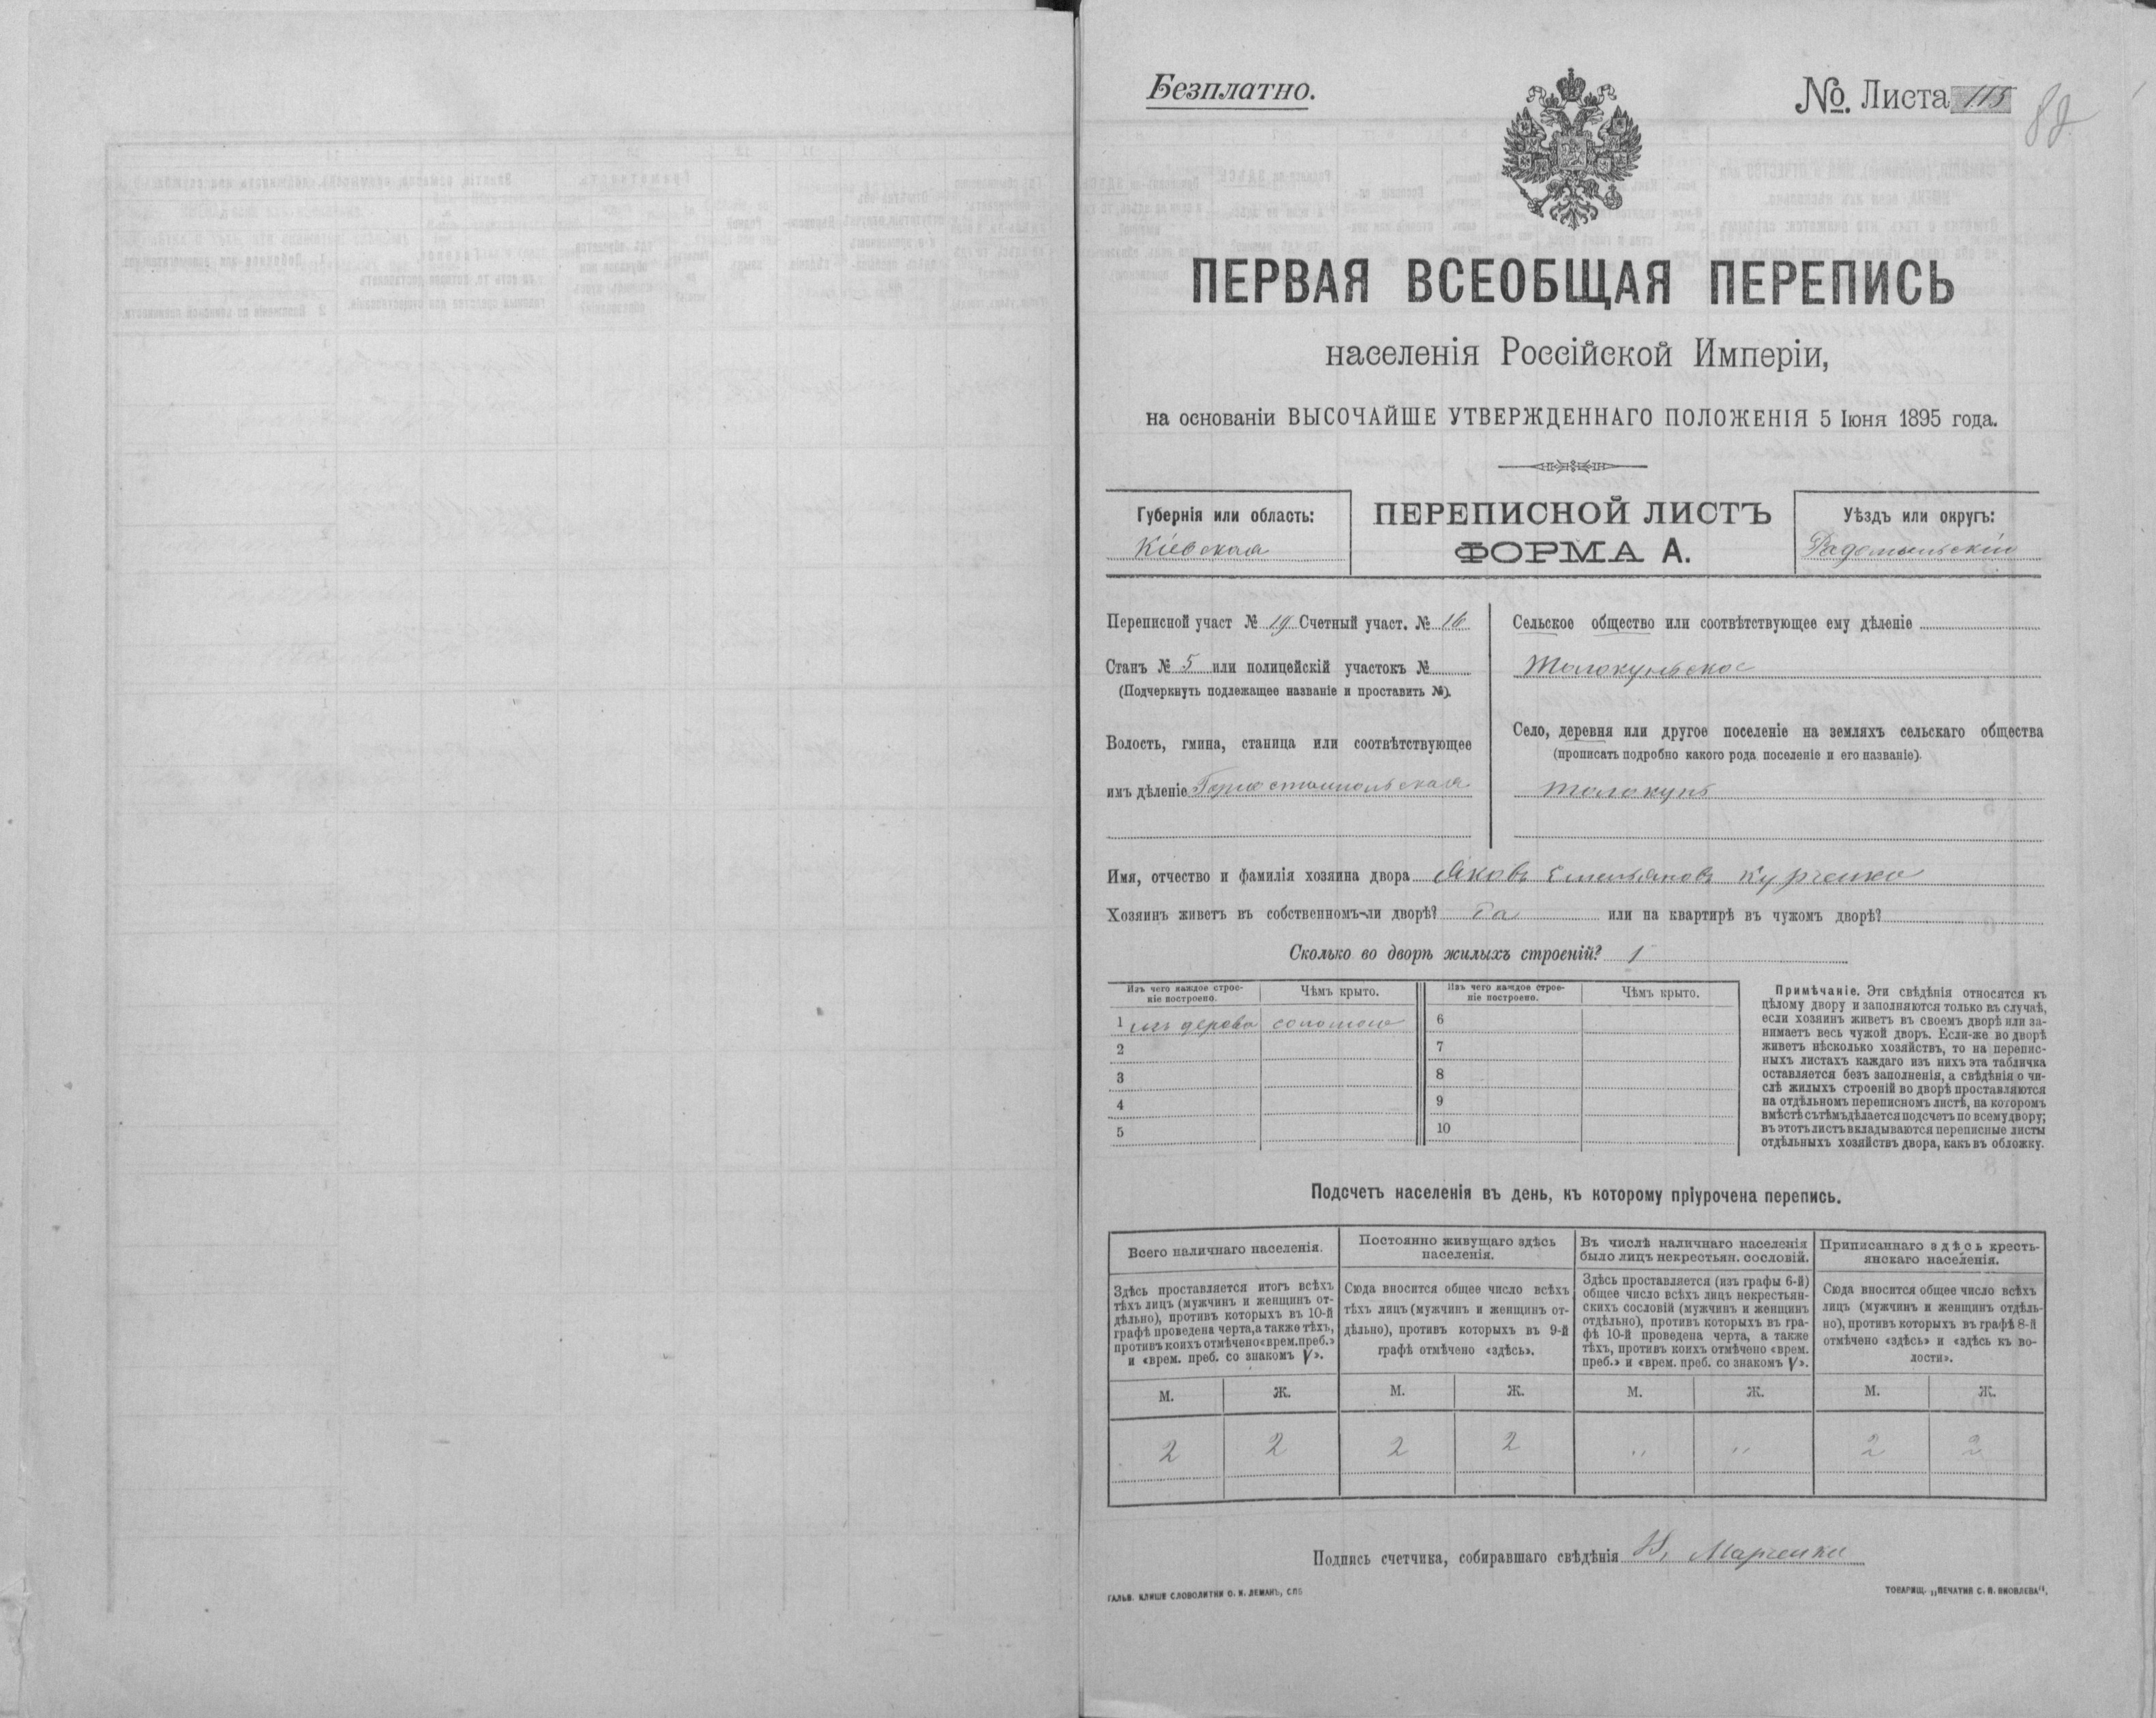 Безплатно.
№. Листа 115
ПЕРВАЯ ВСЕОБЩАЯ ПЕРЕПИСЬ
населенія Россійской Имперіи,
на основаніи ВЫСОЧАЙШЕ УТВЕРЖДЕННАГО ПОЛОЖЕНІЯ 5 Іюня 1895 года.
Губернія или область:
Кіевская
ПЕРЕПИСНОЙ ЛИСТЪ
ФОРМА А.
Уѣздъ или округъ:
Радомысльскій
Переписной участ № 19 Счетный участ. № 16
Станъ № 5 или полицейскій участокъ №
(Подчеркнуть подлежащее названіе и проставить №).
Волость, гмина, станица или соотвѣтствующее
имъ дѣленіе Горностайпольская
Сельское общество или соотвѣтствующее ему дѣленіе
Толокуньское
Село, деревня или другое поселеніе на земляхъ сельскаго общества
(прописать подробно какого рода поселеніе и его названіе).
Толокунь
Имя, отчество и фамилія хозяина двора Яковъ Емельяновъ Курченко
Хозяинъ живетъ въ собственномъ-ли дворѣ? Да или на квартирѣ въ чужомъ дворѣ?
Сколько во дворѣ жилыхъ строеній? 1
Изъ чего каждое строе-
ніе построено.
Чѣмъ крыто.
Изъ чего каждое строе-
ніе построено.
Чѣмъ крыто.
1 изъ дерева соломою
2
3
4
5
6
7
8
9
10
Примѣчаніе. Эти свѣдѣнія относятся къ
цѣлому двору и заполняются только въ случаѣ,
если хозяинъ живетъ въ своемъ дворѣ или за-
нимаетъ весь чужой дворъ. Если-же во дворѣ
живетъ нѣсколько хозяйствъ, то на перепис-
ныхъ листахъ каждаго изъ нихъ эта табличка
оставляется безъ заполненія, а свѣдѣнія о чи-
слѣ жилыхъ строеній во дворѣ проставляются
на отдѣльномъ переписномъ листѣ, на которомъ
вмѣстѣ съ тѣмъ дѣлается подсчетъ по всему двору;
въ этотъ листъ вкладываются переписные листы
отдѣльныхъ хозяйствъ двора, какъ въ обложку.
Подсчетъ населенія въ день, къ которому пріурочена перепись.
Всего наличнаго населенія.
Здѣсь проставляется итогъ всѣхъ
тѣхъ лицъ (мужчинъ и женщинъ от-
дѣльно), противъ которыхъ въ 10-й
графѣ проведена черта, а также тѣхъ,
противъ коихъ отмѣчено «врем. преб.»
и «врем. преб. со знакомъ V».
Постоянно живущаго здѣсь
населенія.
Сюда вносится общее число всѣхъ
тѣхъ лицъ (мужчинъ и женщинъ от-
дѣльно), противъ которыхъ въ 9-й
графѣ отмѣчено «здѣсь».
Въ числѣ наличнаго населенія
было лицъ некрестьян. сословій.
Здѣсь проставляется (изъ графы 6-й)
общее число всѣхъ лицъ некрестьян-
скихъ сословій (мужчинъ и женщинъ
отдѣльно), противъ которыхъ въ гра-
фѣ 10-й проведена черта, а также
тѣхъ, противъ коихъ отмѣчено «врем.
преб.» и «врем. преб. со знакомъ V».
Приписаннаго здѣсь кресть-
янскаго населенія.
Сюда вносится общее число всѣхъ
лицъ (мужчинъ и женщинъ отдѣль-
но), противъ которыхъ въ графѣ 8-й
отмѣчено «здѣсь» и «здѣсь къ во-
лости».
М. Ж. М. Ж. М. Ж. М. Ж.
2 2 2 2 „ „ 2 2
Подпись счетчика, собиравшаго свѣдѣнія Марченко
ГАЛЬВ. КЛИШЕ СЛОВОЛИТНИ О. И. ЛЕМАНЪ, СПБ
ТОВАРИЩ. „ПЕЧАТНЯ С. П. ЯКОВЛЕВА".